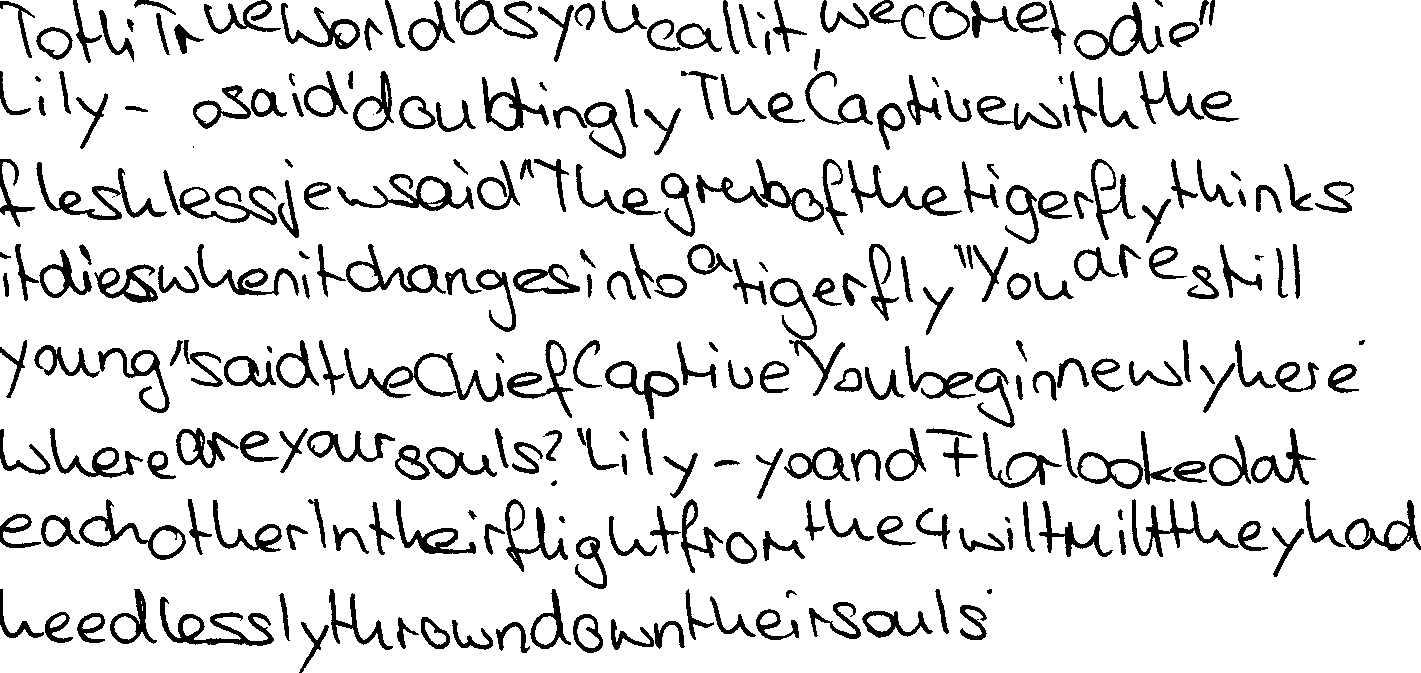 To thi True World as you call it, we come to die"
Lily - o said doubtingly The Captive with the
fleshless jew said "The grub of the tigerfly thinks
it dies when it changes into a tigerfly" "You are still
young" said the Chief Captive "You begin newly here
where are your souls?" Lily-yo and Flor looked at
each other In their flight from the 4wiltMilt they had
heedlessly thrown down their souls